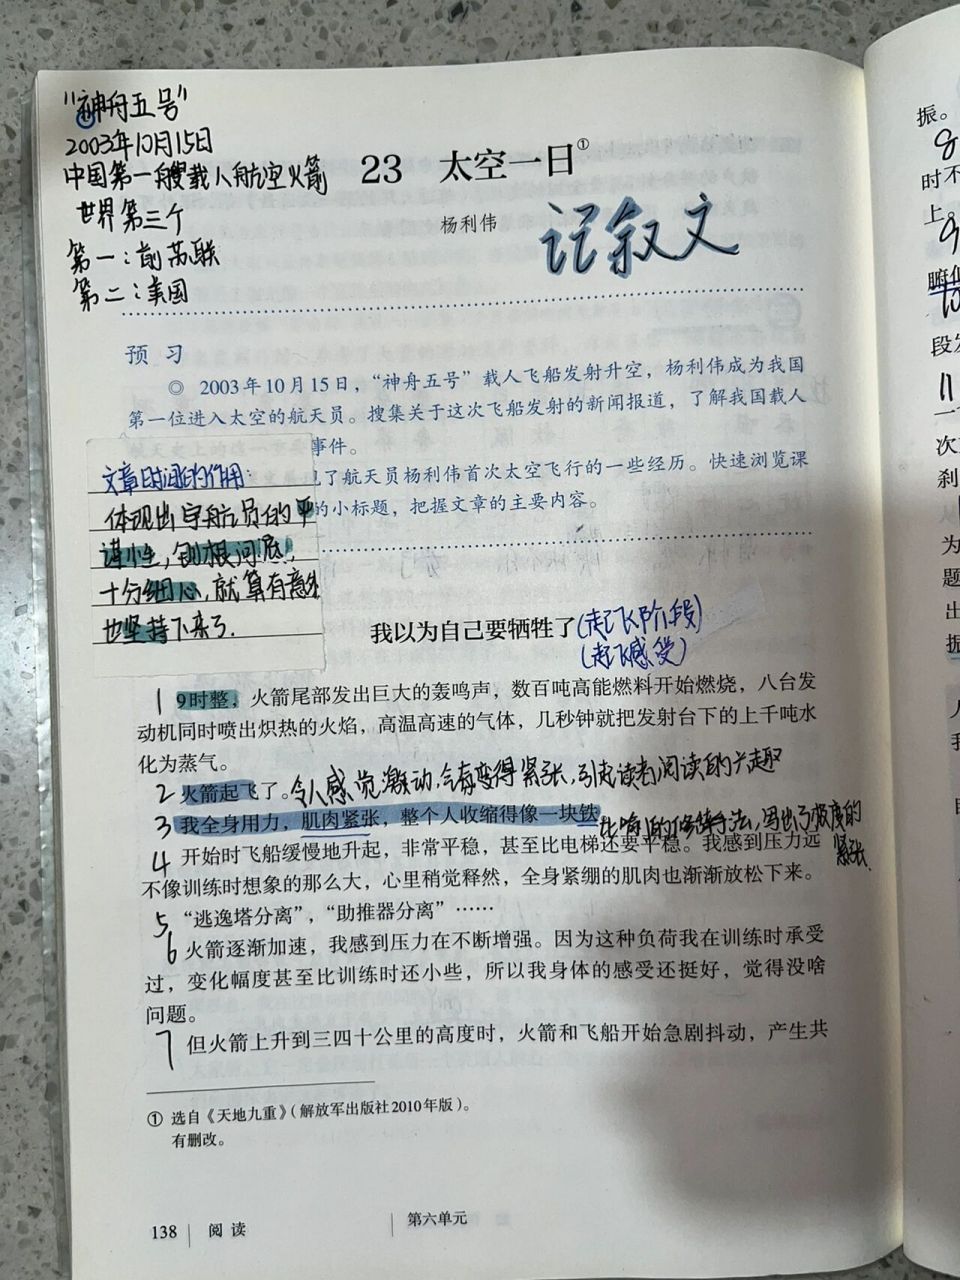 “神舟五号”
2003年10月15日
中国第一艘载人航空火箭
世界第三个
第一：前苏联
第二：美国
23 太空一日①
杨利伟
记叙文
预 习
◎ 2003年10月15日，“神舟五号”载人飞船发射升空，杨利伟成为我国
第一位进入太空的航天员。搜集关于这次飞船发射的新闻报道，了解我国载人
事件。
了航天员杨利伟首次太空飞行的一些经历。快速浏览课
的小标题，把握文章的主要内容。
文章的作用：
体现出宇航员的严
谨小生，刨根问底，
十分细心，就算有意外
也坚持下来了.
我以为自己要牺牲了(起飞阶段)
(起飞感受)
1 9时整，火箭尾部发出巨大的轰鸣声，数百吨高能燃料开始燃烧，八台发
动机同时喷出炽热的火焰，高温高速的气体，几秒钟就把发射台下的上千吨水
化为蒸气。
2 火箭起飞了。令人感觉激动，会变得紧张，引起读者阅读的兴趣
3 我全身用力，肌肉紧张，整个人收缩得像一块铁 比喻的修辞手法，写出了极度的
紧张
4 开始时飞船缓慢地升起，非常平稳，甚至比电梯还要平稳。我感到压力远
不像训练时想象的那么大，心里稍觉释然，全身紧绷的肌肉也渐渐放松下来。
5 “逃逸塔分离”，“助推器分离”……
6 火箭逐渐加速，我感到压力在不断增强。因为这种负荷我在训练时承受
过，变化幅度甚至比训练时还小些，所以我身体的感受还挺好，觉得没啥
问题。
7 但火箭上升到三四十公里的高度时，火箭和飞船开始急剧抖动，产生共
① 选自《天地九重》（解放军出版社2010年版）。
有删改。
138 阅读 第六单元
振。
8
时不
上。
9
俯
10
段发
11
一
次
刹
为
题
出
振